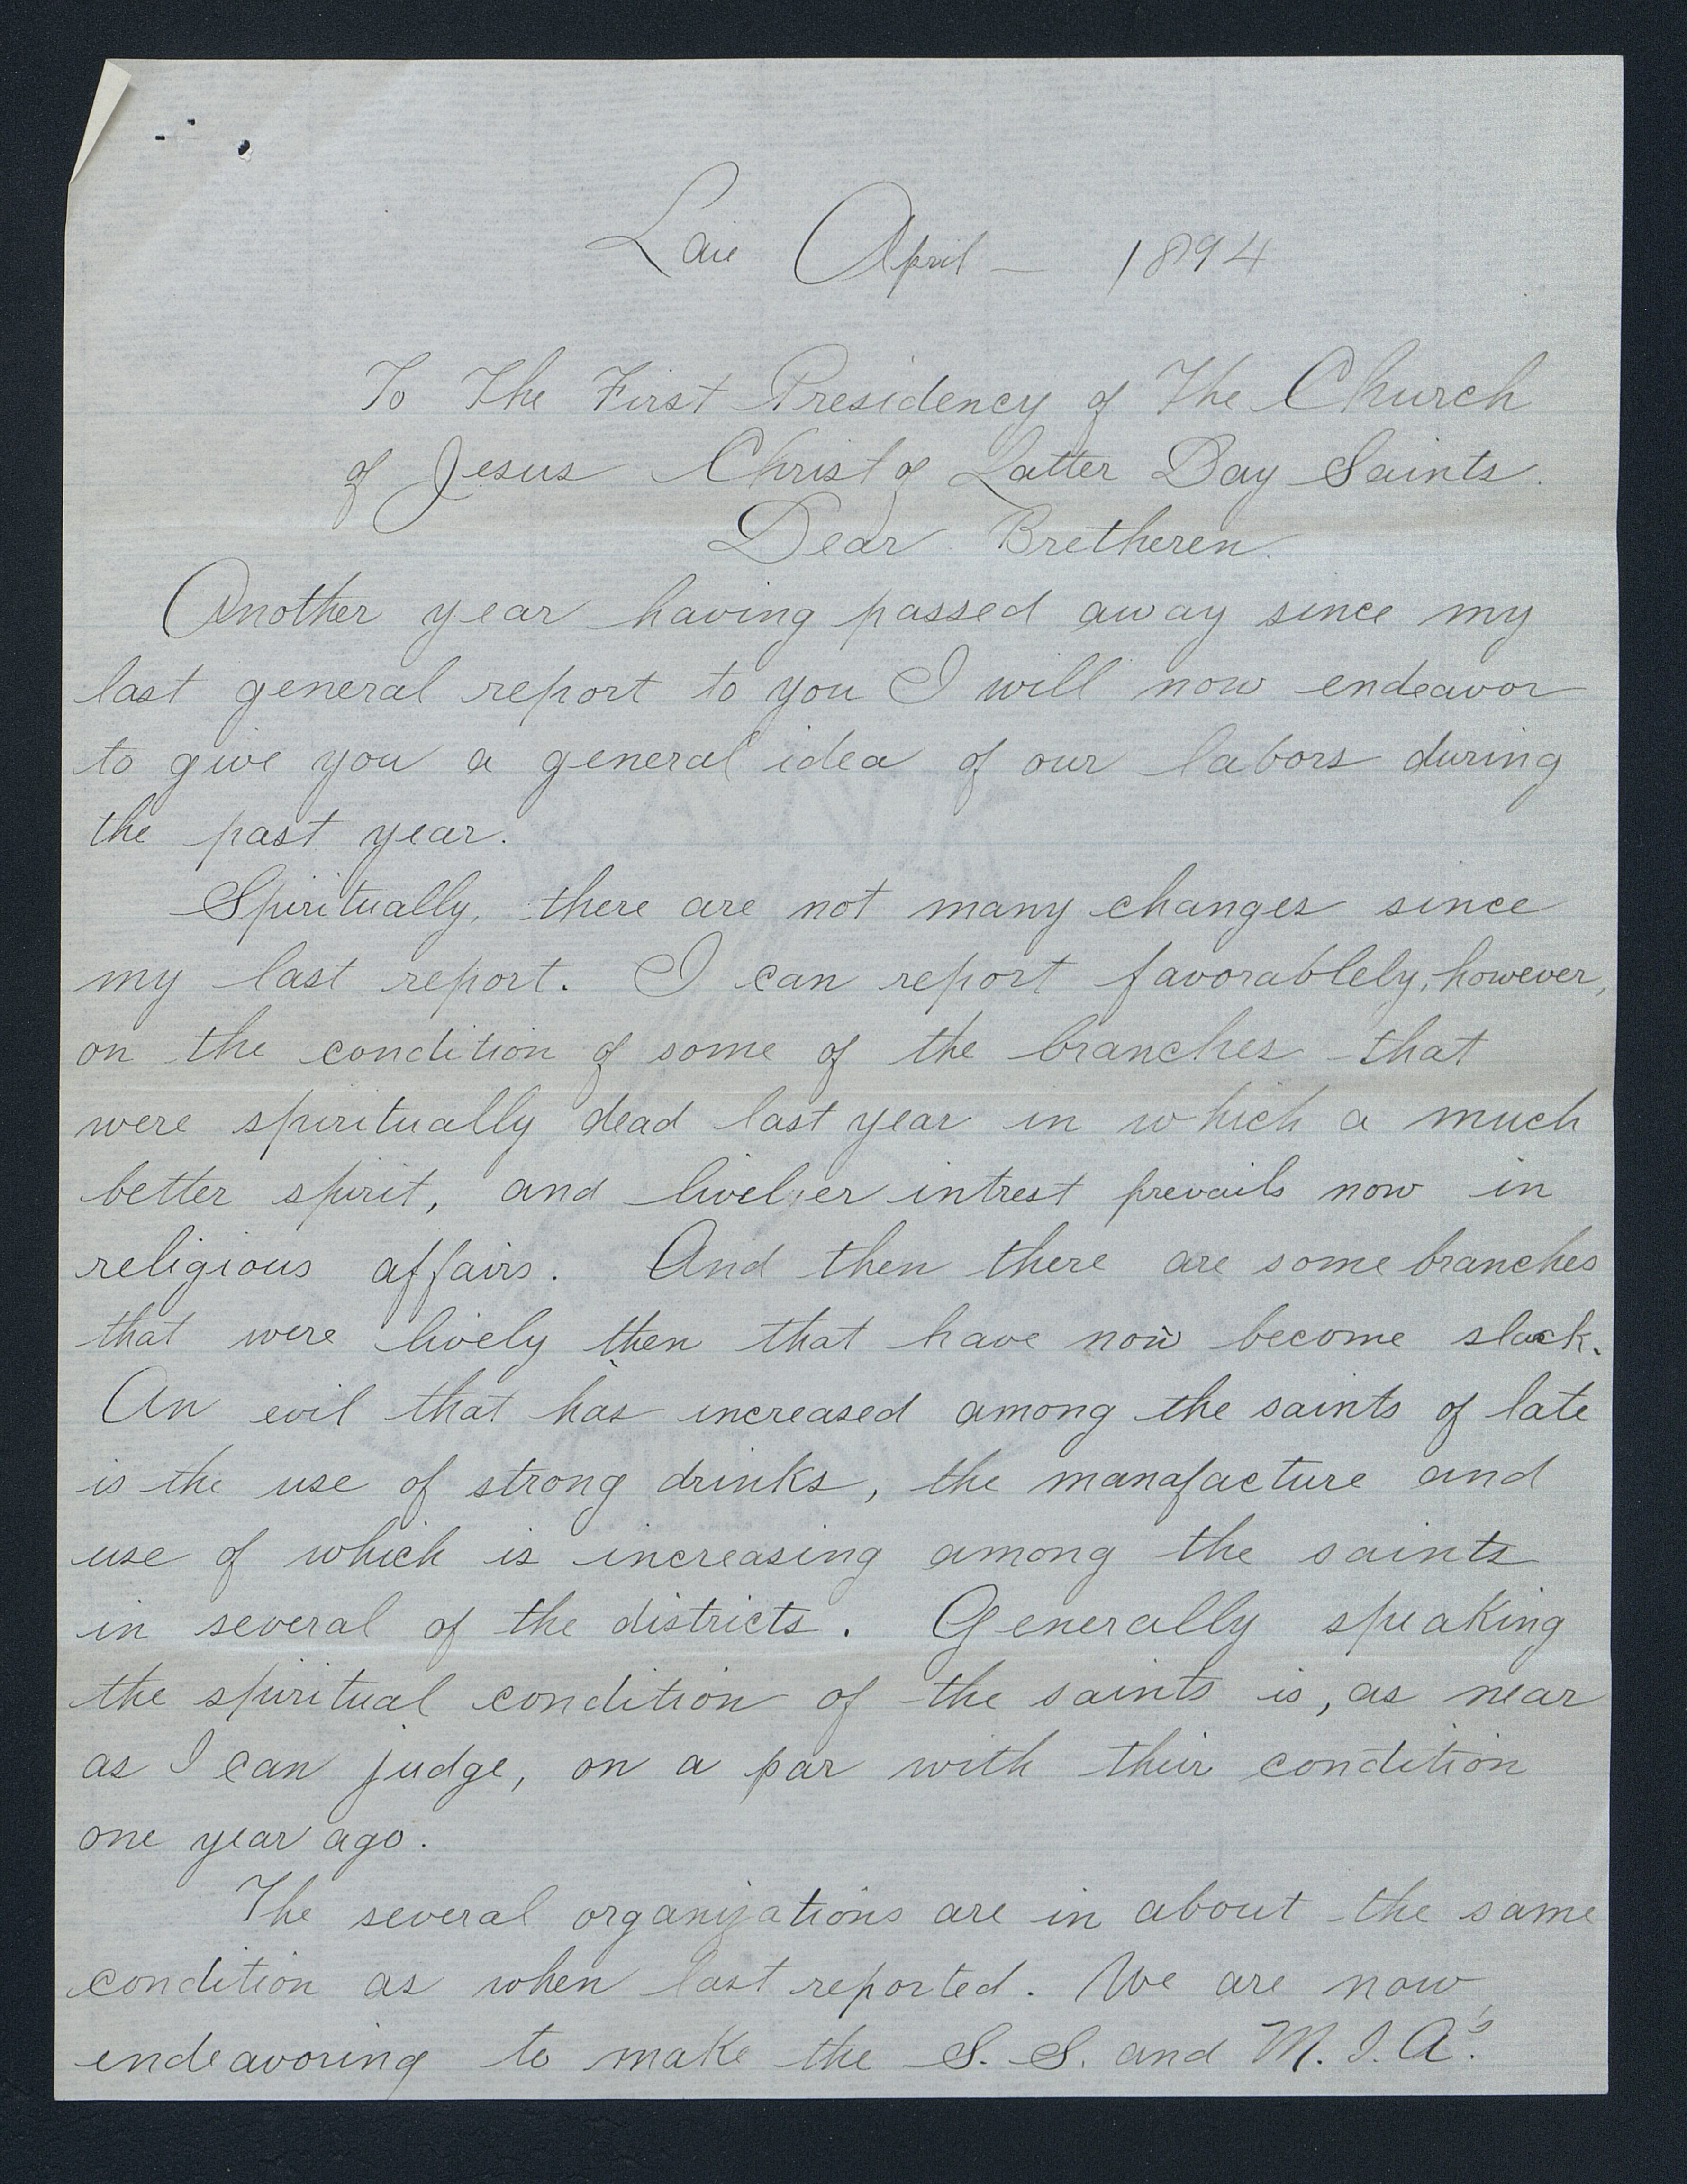 Laie April — 1894
To The First Presidency of The Church
of Jesus Christ of Latter Day Saints.
Dear Bretheren.
Another year having passed away since my
last general report to you I will now endeavor
to give you a general idea of our labors during
the past year.
Spiritually, there are not many changes since
my last report. I can report favorablely, however,
on the condition of some of the branches that
were spiritually dead last year in which a much
better spirit, and livelier intrest prevails now in
religious affairs. And then there are some branches
that were lively then that have now become slack.
An evil that has increased among the saints of late
is the use of strong drinks, the manafacture and
use of which is increasing among the saints
in several of the districts. Generally speaking
the spiritual condition of the saints is, as near
as I can judge, on a par with their condition
one year ago.
The several organizations are in about the same
condition as when last reported. We are now
endeavoring to make the S. S. and M. I. A's.